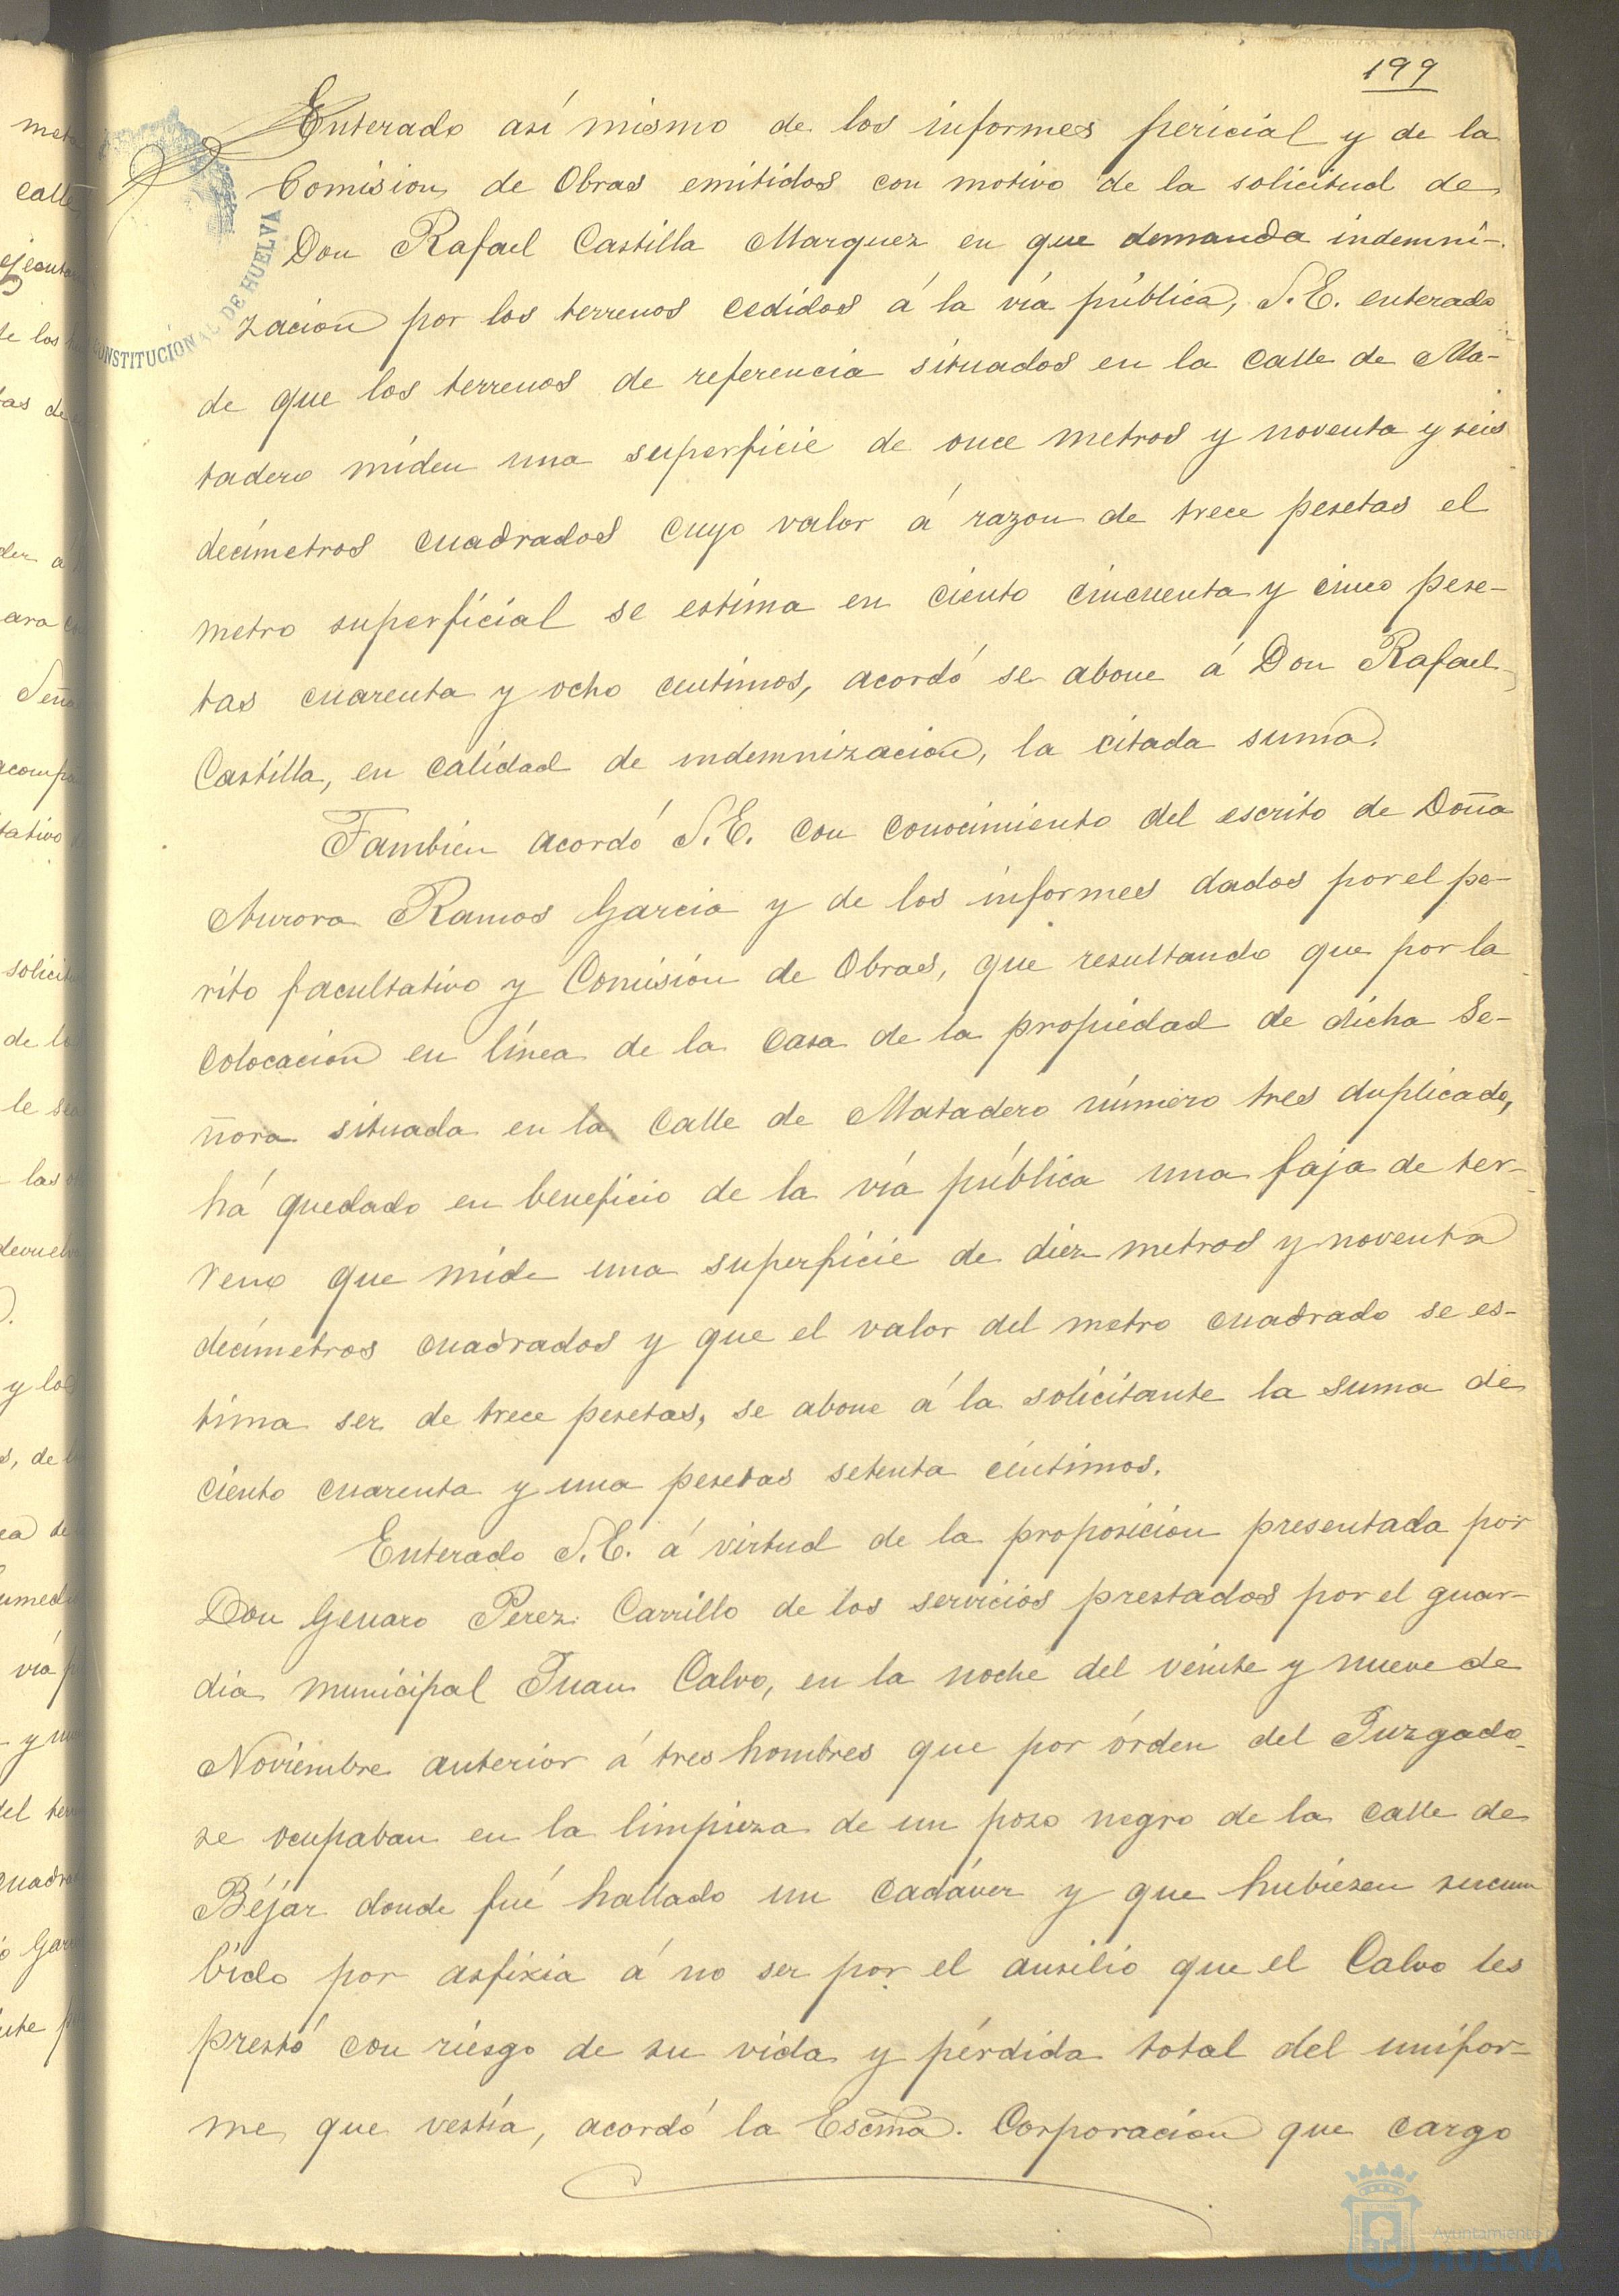 199
Enterado así mismo de los informes pericial y de la
Comision de Obras emitidos con motivo de la solicitud de
Don Rafael Castilla Marquez en que demanda indemni-
zacion por los terrenos cedidos á la vía pública, S.E. enterado
de que los terrenos de referencia situados en la calle de Ma-
tadero miden una superficie de once metros y noventa y seis
decímetros cuadrados cuyo valor á razon de trece pesetas el
metro superficial se estima en ciento cincuenta y cinco pese-
tas cuarenta y ocho centimos, acordó se abone á Don Rafael
Castilla, en calidad de indemnizacion, la citada suma.
Tambien acordó S.E. con conocimiento del escrito de Doña
Aurora Ramos Garcia y de los informes dados por el pe-
rito facultativo y Comisión de Obras, que resultando que por la
colocacion en línea de la casa de la propiedad de dicha Se-
ñora situada en la calle de Matadero número tres duplicado,
há quedado en beneficio de la vía pública una faja de ter-
reno que mide una superficie de diez metros y noventa
decímetros cuadrados y que el valor del metro cuadrado se es-
tima ser de trece pesetas, se abone á la solicitante la suma de
ciento cuarenta y una pesetas setenta céntimos.
Enterado S.E. á virtud de la proposicion presentada por
Don Genaro Perez Carrillo de los servicios prestados por el guar-
dia municipal Juan Calvo, en la noche del veinte y nueve de
Noviembre anterior á tres hombres que por órden del Juzgado
se ocupaban en la limpieza de un pozo negro de la calle de
Béjar donde fué hallado un cadáver y que hubiesen sucum
bido por asfixia á no ser por el ausilio que el Calvo les
prestó con riesgo de su vida y pérdida total del unifor-
me que vestía, acordó la Escma. Corporacion que cargo
CONSTITUCIONAL DE HUELVA
Ayuntamiento
HUELVA